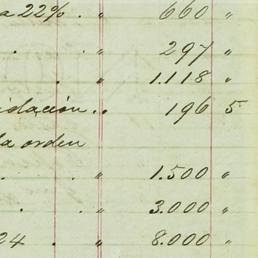 a 22% . " 660 "
. " 297 "
. " 1.118 "
idación . . 196 5
la orden
. . " 1.500 "
. " 3.000 "
24 . " 8.000 "